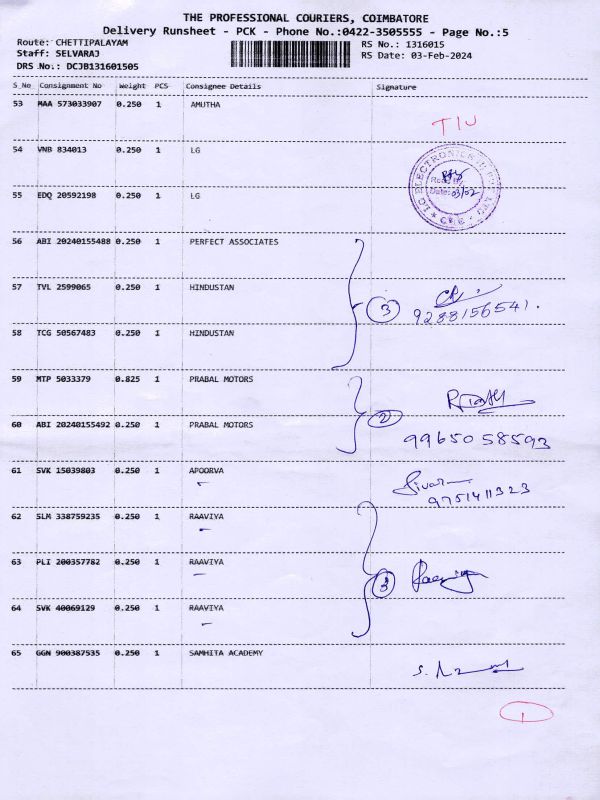 THE PROFESSIONAL COURIERS, COIMBATORE
Delivery Runsheet - PCK - Phone No.:0422-3505555 - Page No.:5
Route: CHETTIPALAYAM RS No.: 1316015
Staff: SELVARAJ RS Date: 03-Feb-2024
DRS No.: DCJB131601505
S_No Consignment No Weight PCS Consignee Details Signature
53 MAA 573033907 0.250 1 AMUTHA
54 VNB 834013 0.250 1 LG
LG ELECTRONICS
Date: 03/02
55 EDQ 20592198 0.250 1 LG
56 ABI 20240155488 0.250 1 PERFECT ASSOCIATES
57 TVL 2599065 0.250 1 HINDUSTAN
3 9288156541.
58 TCG 50567483 0.250 1 HINDUSTAN
59 MTP 5033379 0.825 1 PRABAL MOTORS
60 ABI 20240155492 0.250 1 PRABAL MOTORS
2 9965058593
61 SVK 15039803 0.250 1 APOORVA
9751411323
62 SLM 338759235 0.250 1 RAAVIYA
63 PLI 200357782 0.250 1 RAAVIYA
3
64 SVK 40069129 0.250 1 RAAVIYA
65 GGN 900387535 0.250 1 SAMHITA ACADEMY
1